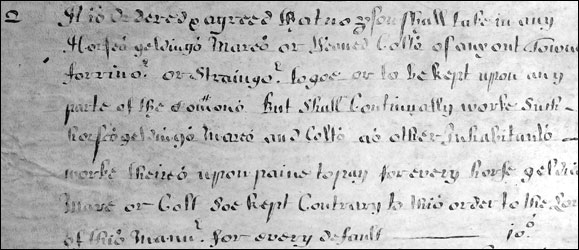 2 It is Ordered & agreed that no pson shall take in any
Horses geldings Mares or Weined Colts of any out Towne
forrinor. or Straingr. to goe or to be kept upon any
parte of the Comons But shall Continually worke Such
horses geldings Mares and Colts as other Inhabitants
worke theires upon paine to pay for every horse geldin
Mare or Colt Soe kept Contrary to this order to the Lor
of this Mannr. for every default 10s